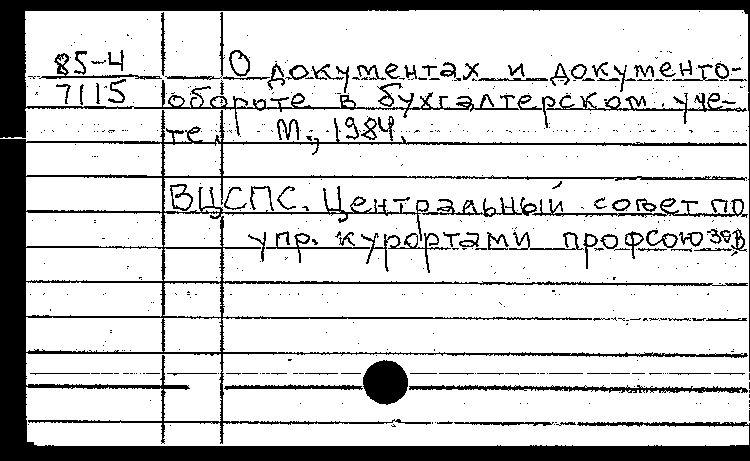 85-4
7115
О документах и документо-
обороте в бухгалтерском уче-
те. М., 1984.
ВЦСПС. Центральный совет по
упр. курортами профсоюзов